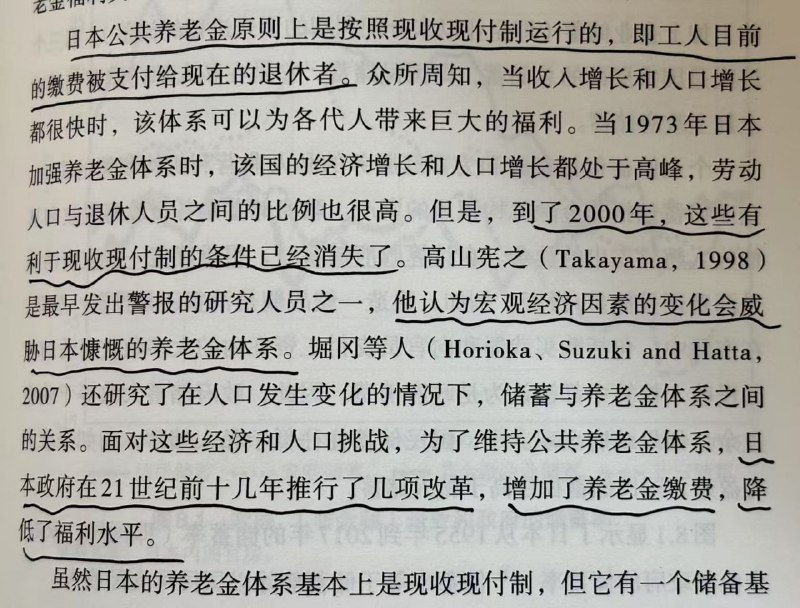 老金福利
日本公共养老金原则上是按照现收现付制运行的，即工人目前
的缴费被支付给现在的退休者。众所周知，当收入增长和人口增长
都很快时，该体系可以为各代人带来巨大的福利。当1973年日本
加强养老金体系时，该国的经济增长和人口增长都处于高峰，劳动
人口与退休人员之间的比例也很高。但是，到了2000年，这些有
利于现收现付制的条件已经消失了。高山宪之（Takayama，1998）
是最早发出警报的研究人员之一，他认为宏观经济因素的变化会威
胁日本慷慨的养老金体系。堀冈等人（Horioka、Suzuki and Hatta，
2007）还研究了在人口发生变化的情况下，储蓄与养老金体系之间
的关系。面对这些经济和人口挑战，为了维持公共养老金体系，日
本政府在21世纪前十几年推行了几项改革，增加了养老金缴费，降
低了福利水平。
虽然日本的养老金体系基本上是现收现付制，但它有一个储备基